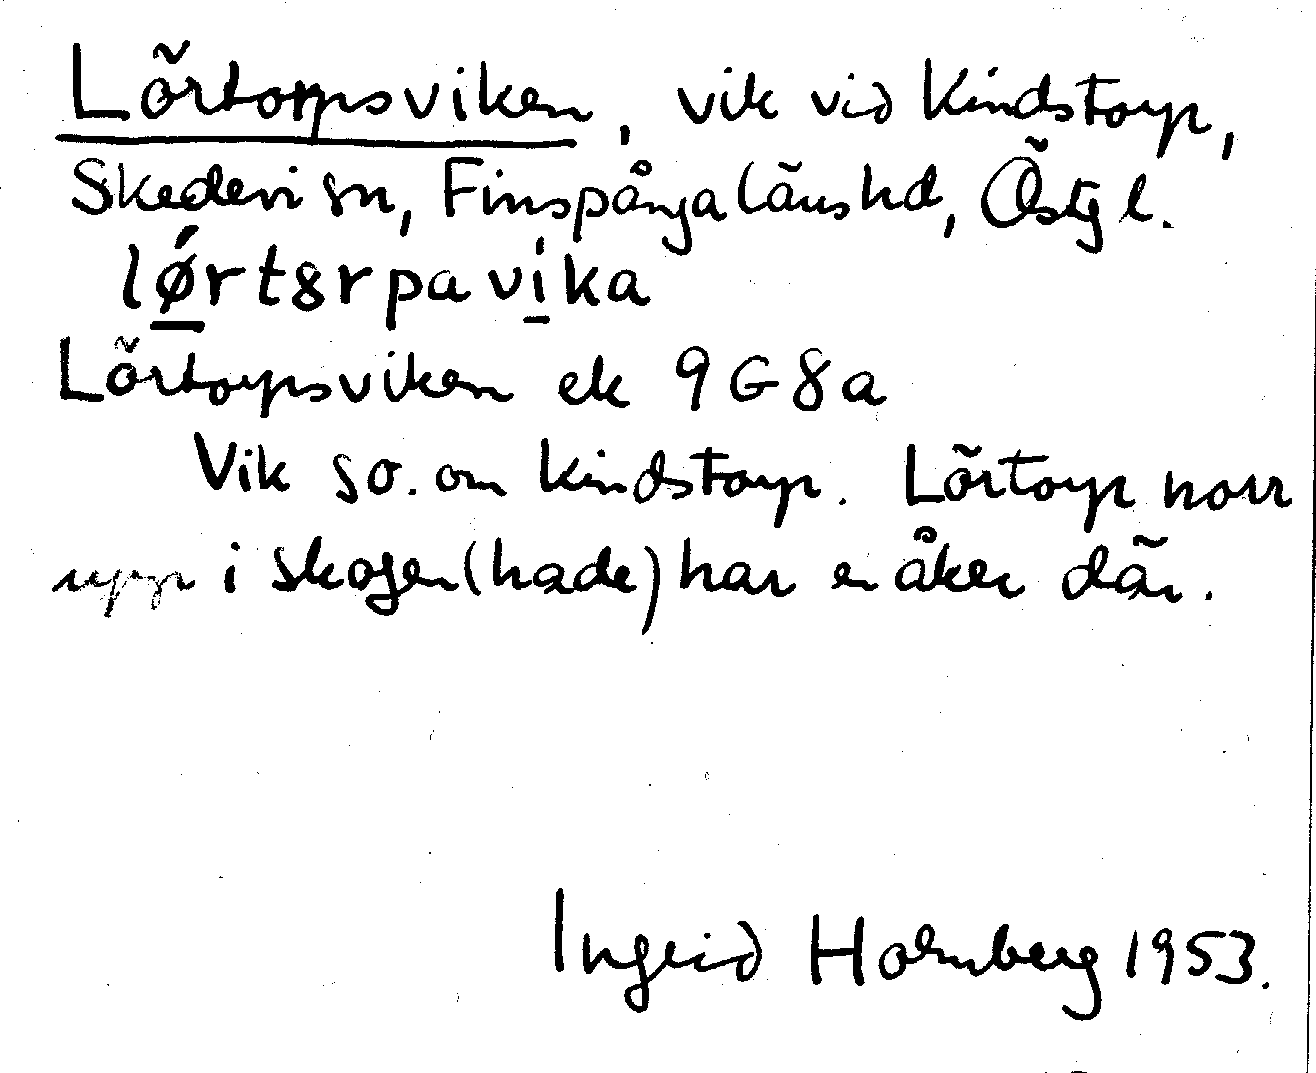 Lörtorpsviken, vik vid Kindstorp,
Skedevi sn, Finspånga läns hd, Östgl.
lǿrtȣrpavi̍ka
Lörtorpsviken ek 9G8a
Vik so. om Kindstorp. Lörtorp norr
upp i skogen (hade) har en åker där.
Ingrid Holmberg 1953.